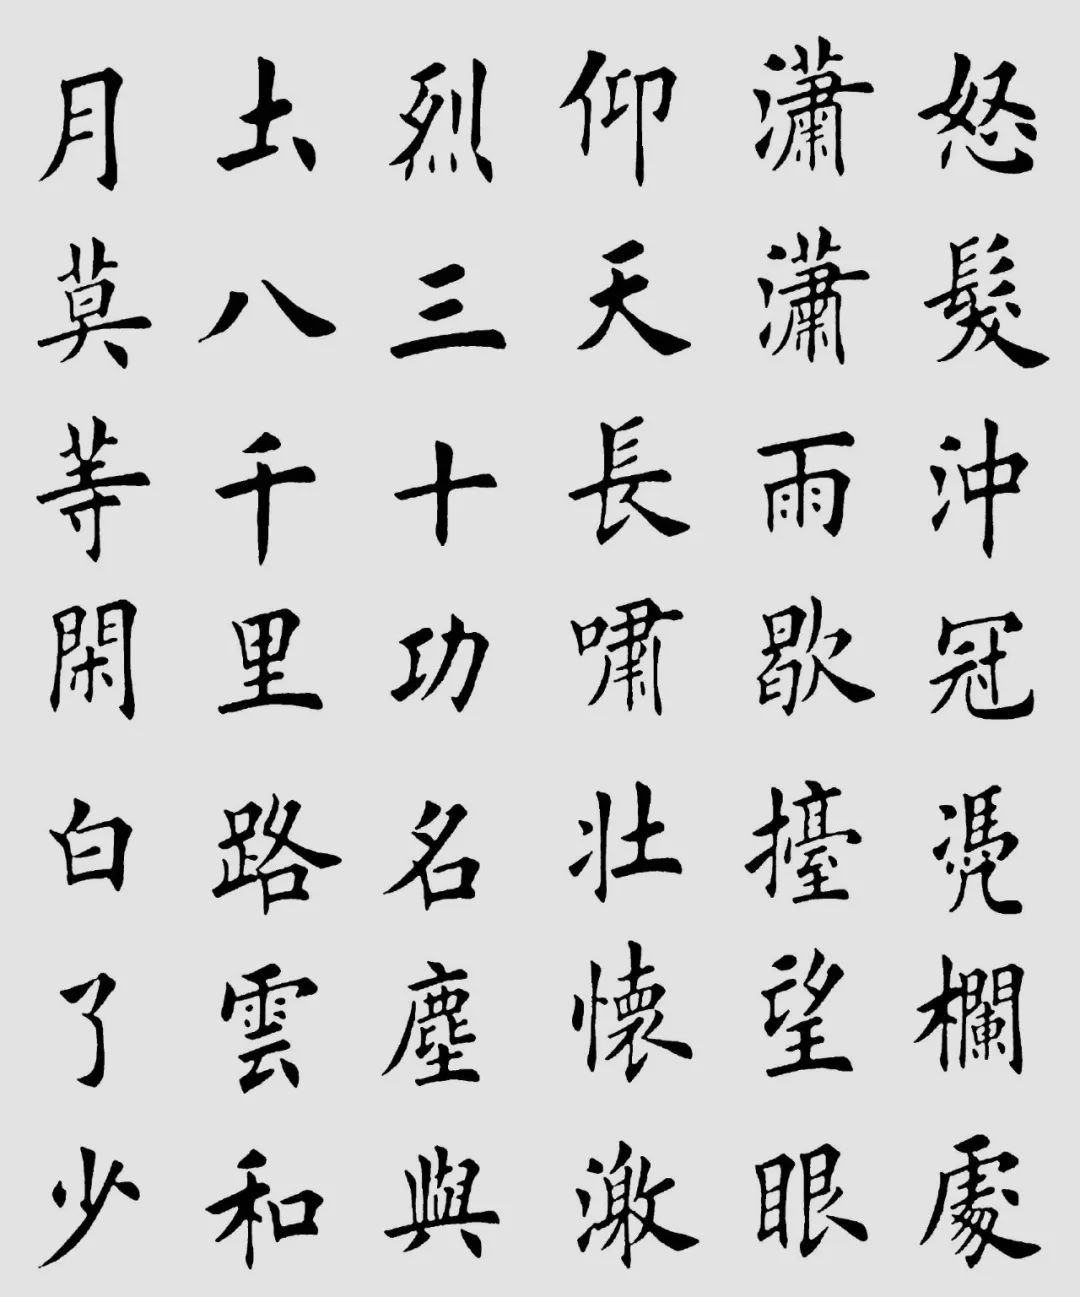 怒髮沖冠憑欄處
瀟瀟雨歇擡望眼
仰天長嘯壯懷激
烈三十功名塵與
土八千里路雲和
月莫等閑白了少